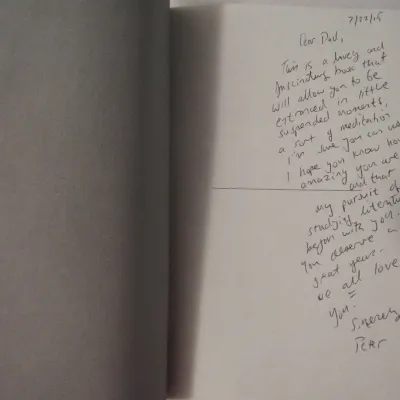 Dear Dad,
This is a lovely and
fascinating book that
will allow you to be
entranced in little
suspended moments,
a sort of meditation
I'm sure you can
I hope you know how
amazing you are
and that
my pursuit of
studying
began with you.
You deserve a
great year.
We all love
you.
Sincerely
Peter